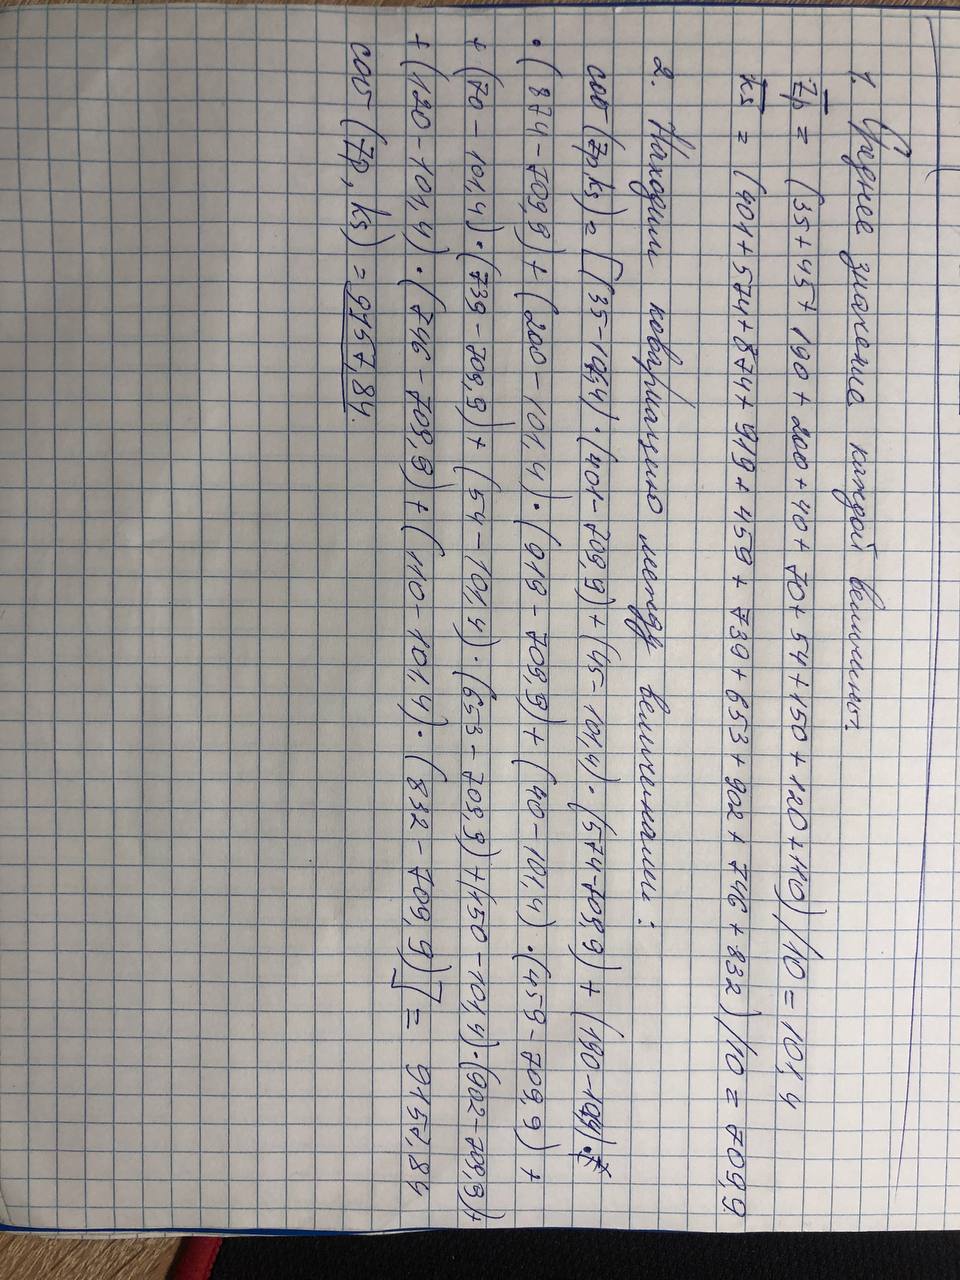 1. Среднее значение каждой величины
zp = (35+45+190+200+40+70+54+150+120+110)/10 = 101,4
ks = (401+574+874+919+459+739+653+902+746+832)/10 = 709,9
2. Находим ковариацию между величинами:
cov (zp, ks) = [(35-101,4)·(401-709,9)+(45-101,4)·(574-709,9)+(190-101,4)·
·(874-709,9)+(200-101,4)·(919-709,9)+(40-101,4)·(459-709,9)+
+(70-101,4)·(739-709,9)+(54-101,4)·(653-709,9)+(150-101,4)·(902-709,9)+
+(120-101,4)·(746-709,9)+(110-101,4)·(832-709,9)] = 9157,84
cov (zp, ks) = 9157,84.